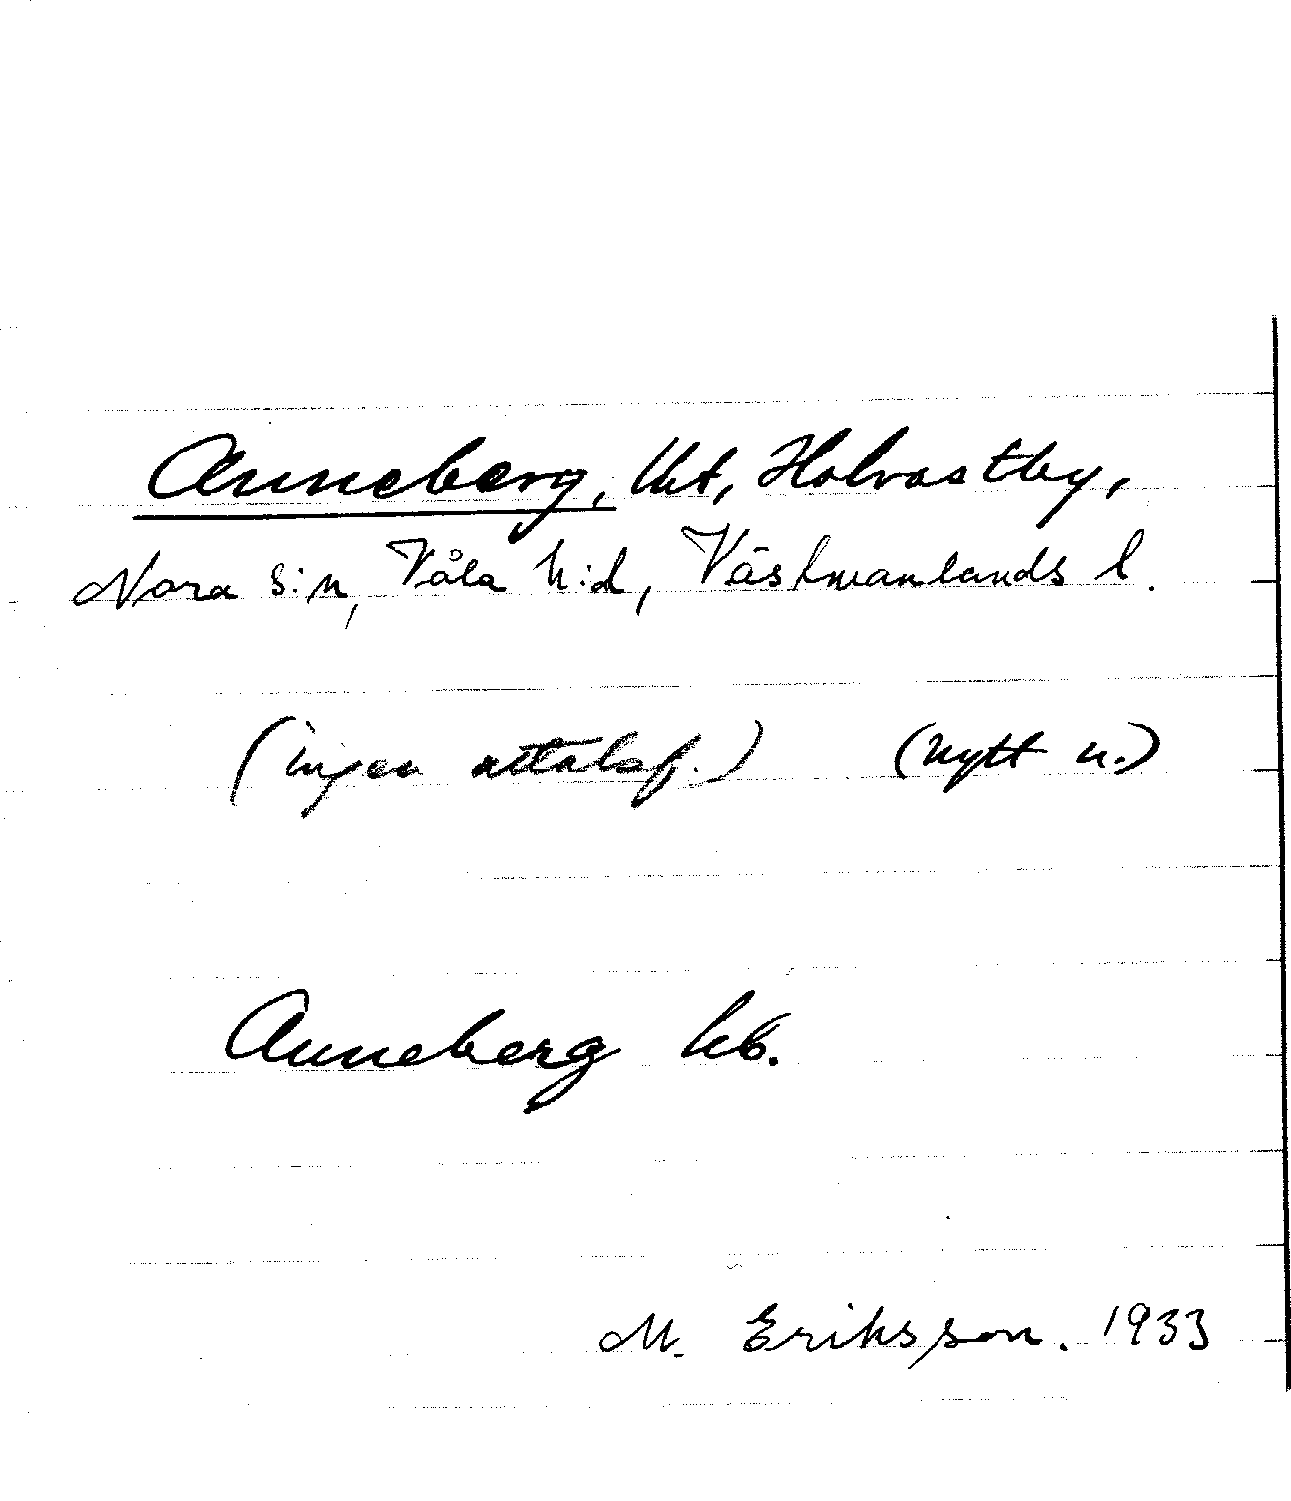 Anneberg, lht, Holvastby,
Nora s:n, Våla h:d, Västmanlands l.
(ingen uttalsf.) (nytt n.)
Anneberg hb.
M. Eriksson. 1933